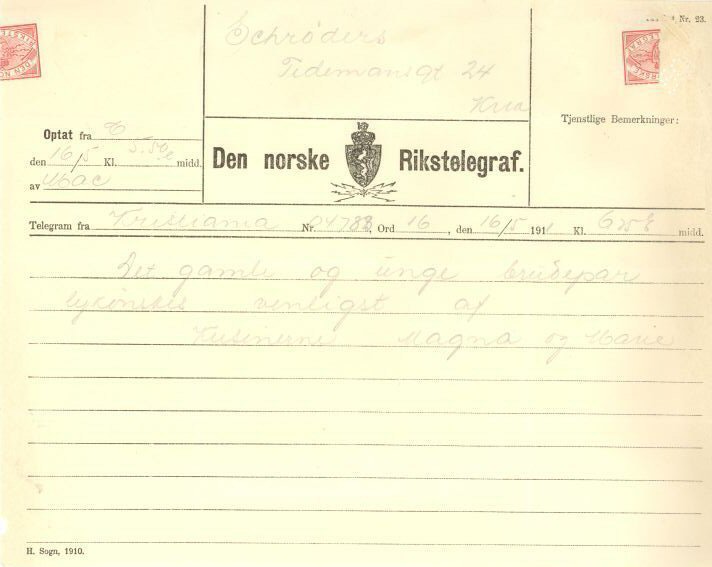 Nr. 23.
Schrøders
Tidemansgt 24
Kria
Tjenstlige Bemerkninger:
Optat fra
den 16/5 Kl. midd.
av
Den norske Rikstelegraf.
Telegram fra Kristiania Nr. Ord 16, den 16/5 191 Kl. midd.
Det gamle og unge brudepar
lykønskes venligst af
Kusinerne Magna og Marie
H. Sogn, 1910.